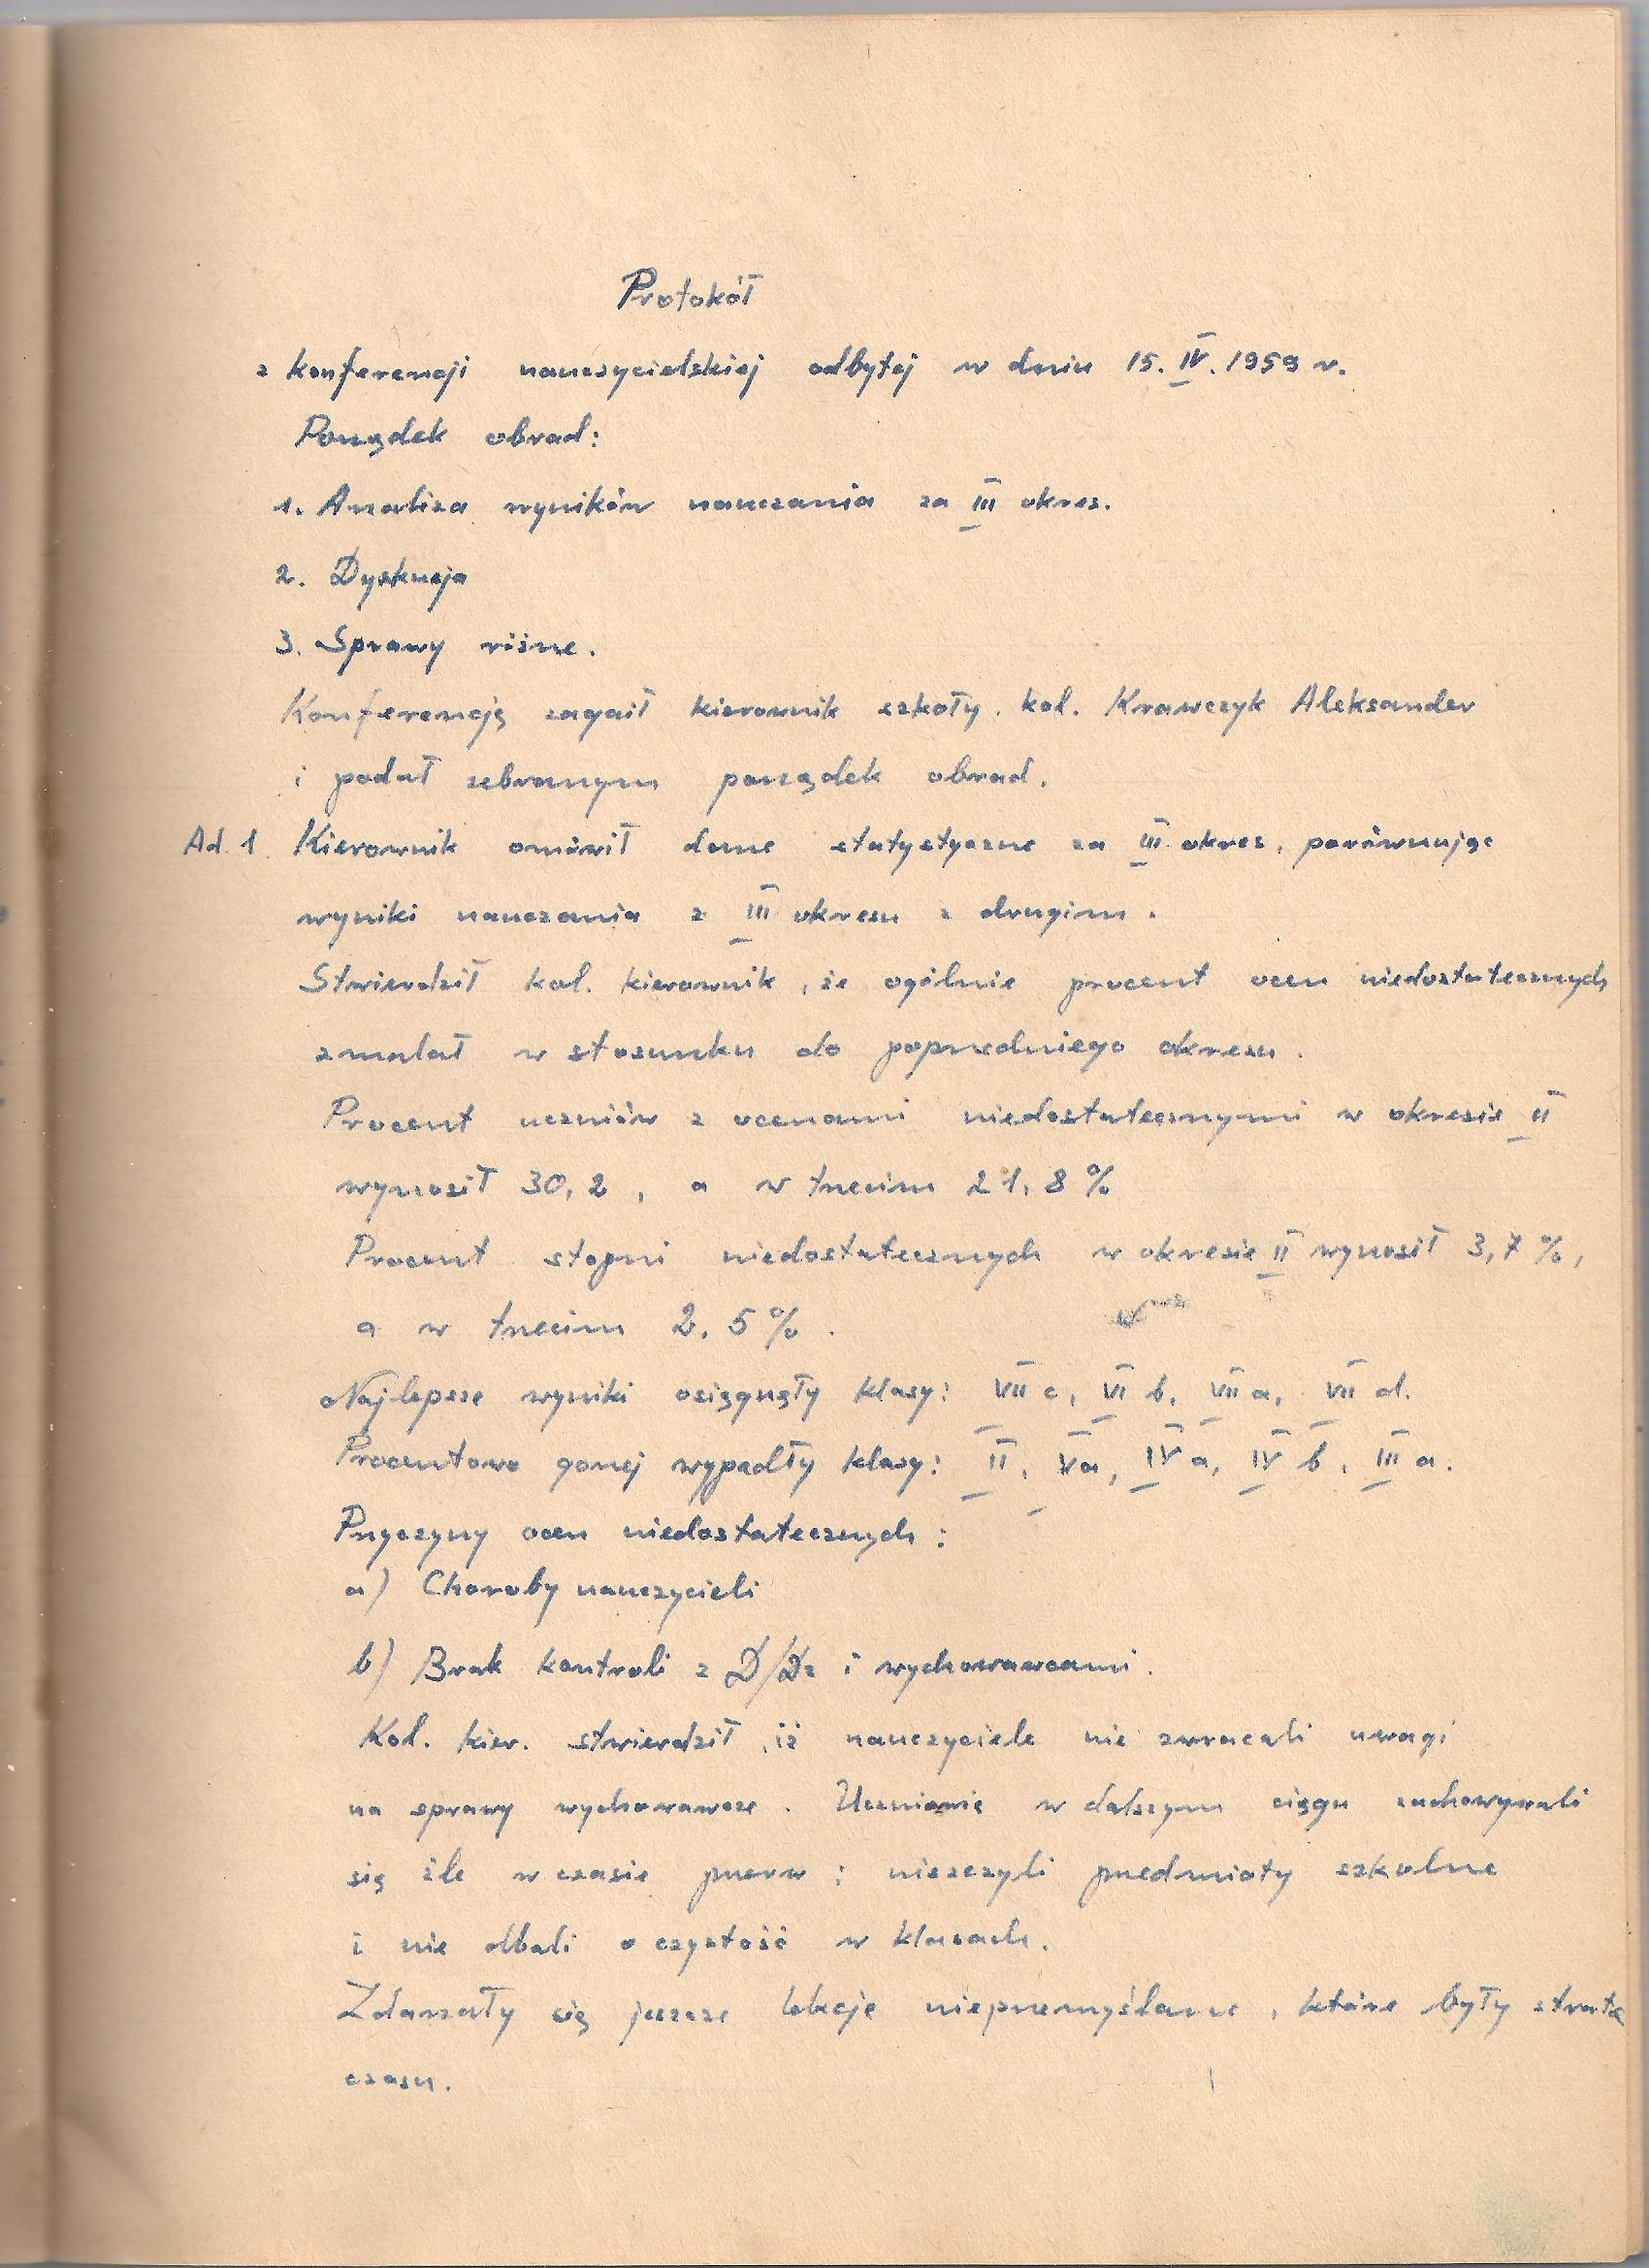 Protokół
z konferencji nauczycielskiej odbytej w dniu 15. IV. 1959 r.
Porządek obrad:
1. Analiza wyników nauczania za III okres.
2. Dyskusja
3. Sprawy różne.
Konferencję zagaił kierownik szkoły. kol. Krawczyk Aleksander
i podał zebranym porządek obrad.
Ad. 1. Kierownik omówił dane statystyczne za III okres, porównując
wyniki nauczania z III okresu z drugim.
Stwierdził kol. kierownik, że ogólnie procent ocen niedostatecznych
zmalał w stosunku do poprzedniego okresu.
Procent uczniów z ocenami niedostatecznymi w okresie II
wynosił 30,2, a w trzecim 21,8 %
Procent stopni niedostatecznych w okresie II wynosił 3,7 %,
a w trzecim 2,5 %.
Najlepsze wyniki osiągnęły klasy: VII c, VI b, VII a, VII d.
Procentowo gorzej wypadły klasy: II, V a, IV a, IV b, III a.
Przyczyny ocen niedostatecznych:
a) Choroby nauczycieli
b) Brak kontroli z D/Dz i wychowawcami.
Kol. kier. stwierdził, iż nauczyciele nie zwracali uwagi
na sprawy wychowawcze. Uczniowie w dalszym ciągu zachowywali
się źle w czasie przerw; niszczyli przedmioty szkolne
i nie dbali o czystość w klasach.
Zdarzały się jeszcze lekcje nieprzemyślane, które były stratą
czasu.